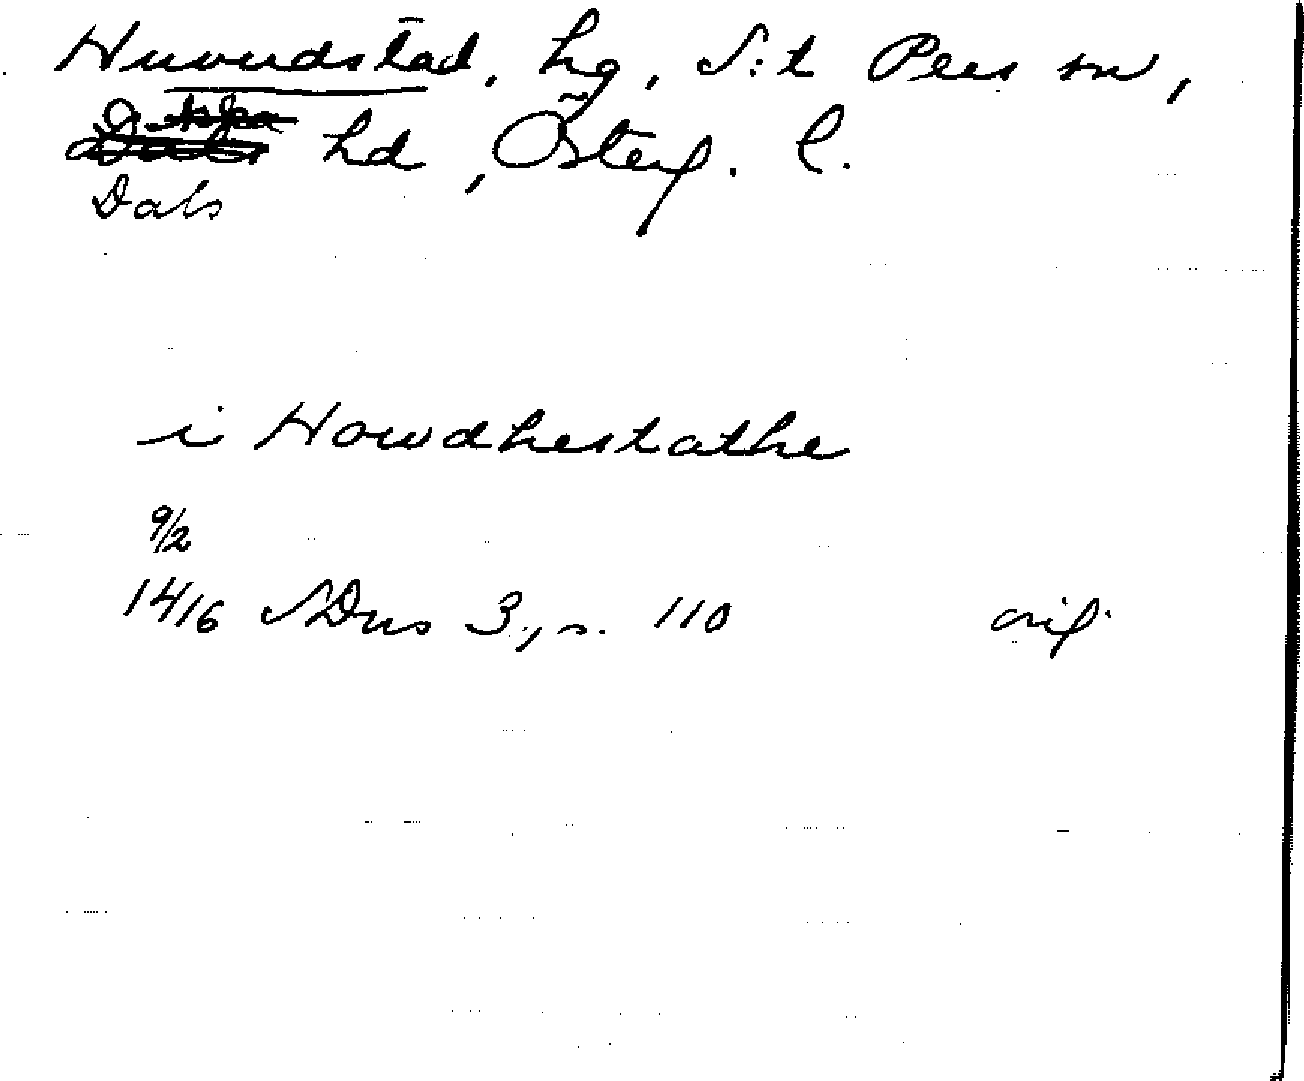 Huvudstad, hg, S:t Pers sn,
hd, Österg. l.
Dals
i Howdhestathe
9/2
1416 SDns 3, s. 110 orig.